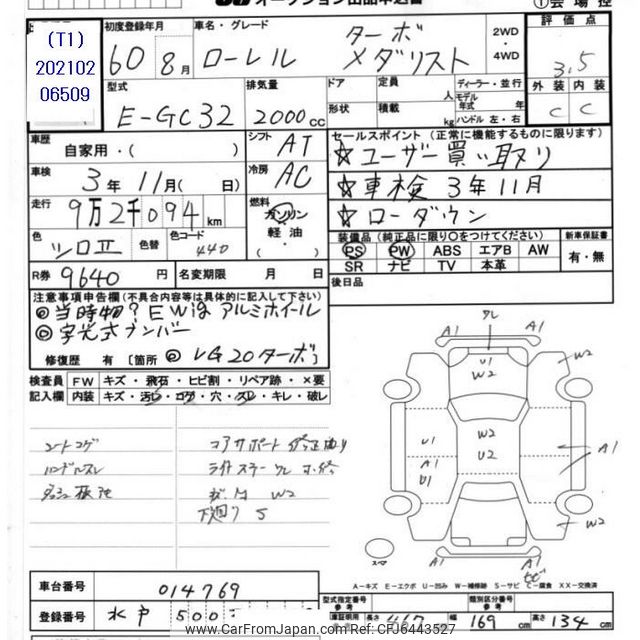 オークション出品申込書
①会場控
(T1)
202102
06509
初度登録年月
60 8月
車名・グレード
ローレル ターボ メダリスト
2WD
・
4WD
評価点
3.5
外装 内装
C C
型式
E-GC32
排気量
2000cc
ドア
形状
定員 人
積載 kg
ディーラー・並行
モデル年式 年
ハンドル 左・右
車歴
自家用・( )
シフト AT
車検
3年11月( 日)
冷房 AC
走行
9万2千094km
燃料
ガソリン
軽油・
( )
色
シロⅡ
色替
色コード
440
R券 9640円
名変期限 月 日
セールスポイント(正常に機能するものに限ります)
☆ユーザー買い取り
☆車検 3年11月
☆ローダウン
装備品(純正品に限り〇をつけてください)
PS PW ABS エアB AW
SR ナビ TV 本革
新車保証書
有・無
後日品
注意事項申告欄(不具合内容等は具体的に記入して下さい)
◎当時物?EWiGアルミホイール
◎字光式ナンバー
修復歴 有〔箇所 ◎VG20ターボ〕
検査員
記入欄
FW キズ・飛石・ヒビ割・リペア跡・×要
内装 キズ・汚レ・コゲ・穴・スレ・キレ・破レ
シートコゲ
ハンドルスレ
コアサポート修正有り
W2
下廻りS
A1 A1
U1
W2
W2
U1
A1
U1
W2
U2
A1
A1
W2
W2
A1 A1
スペア
A-キズ E-エクボ U-凹み W-補修跡 S-サビ C-腐食 XX-交換済
車台番号 014769
登録番号 水戸 500
型式指定番号
参考
類別区分番号
参考
長さ 467 幅 169cm 高さ 134cm
www.CarFromJapan.com CFJ6443527